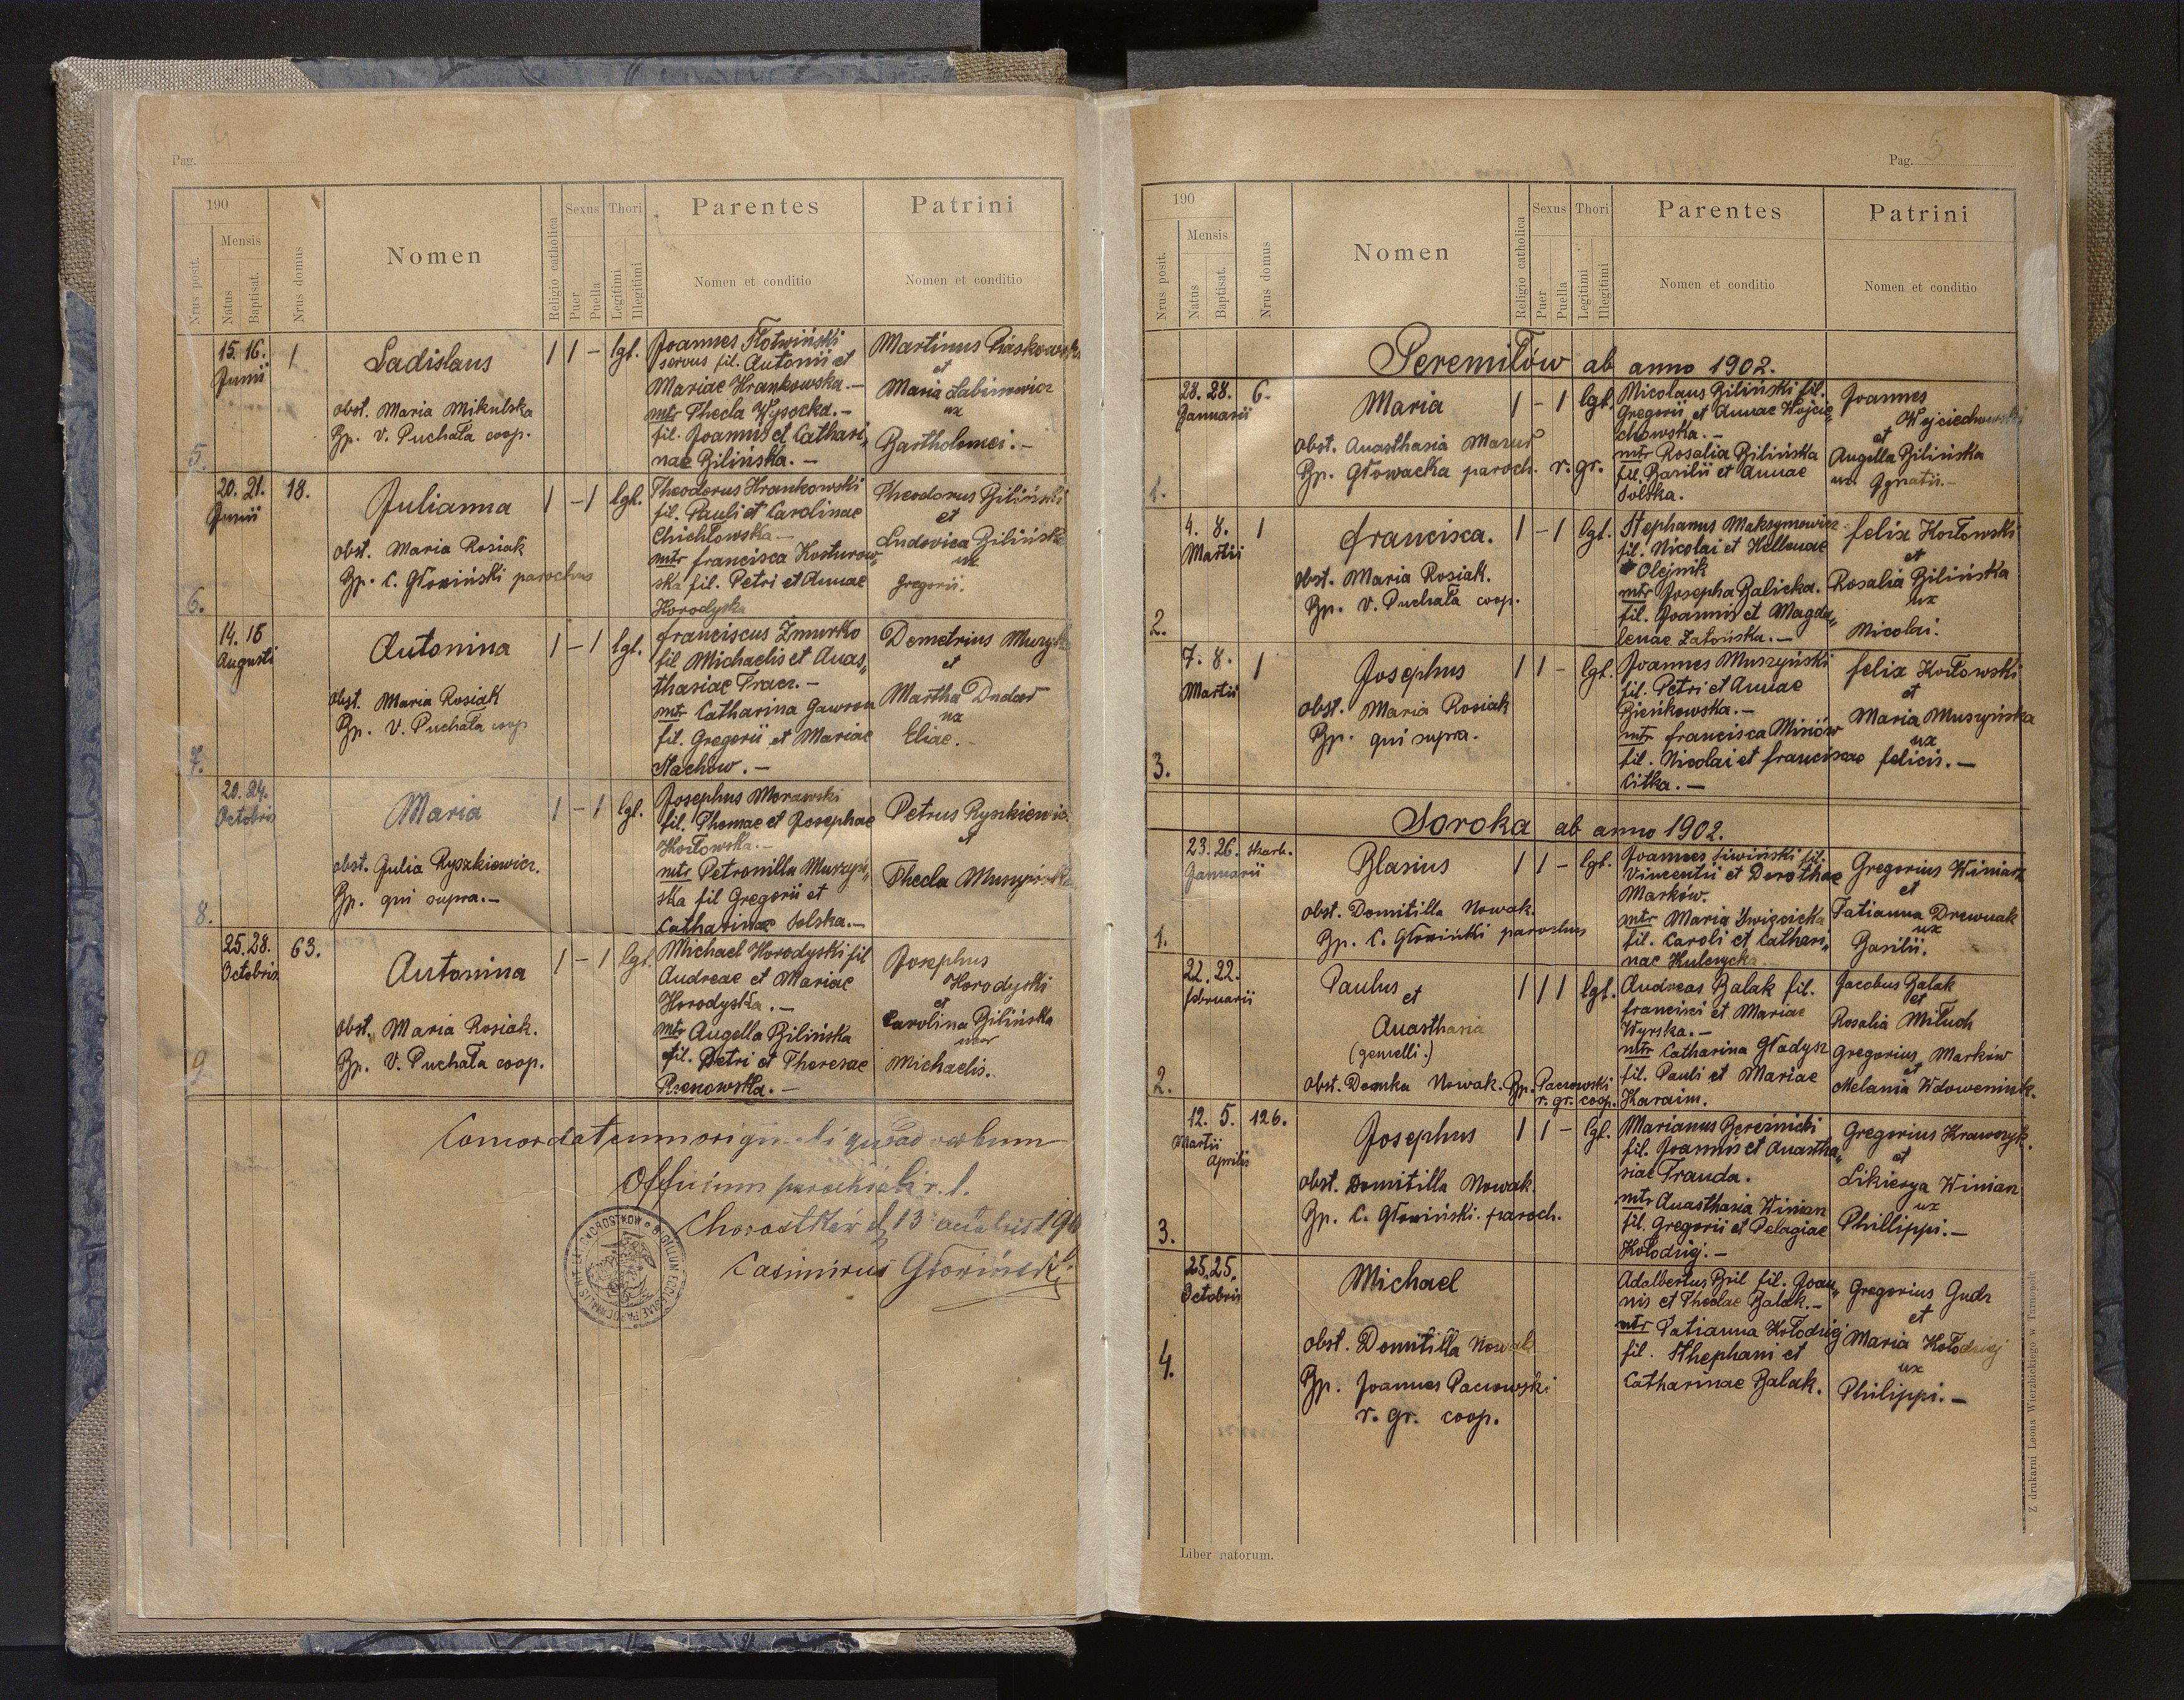 4
Pag.
190
Nrus posit.
Mensis
Natus
Baptisat.
Nrus domus
Nomen
Religio catholica
Sexus
Puer
Puella
Thori
Legitimi
Illegitimi
Parentes
Nomen et conditio
Patrini
Nomen et conditio
5.
15. 16.
Junii
1
Ladislaus
obst. Maria Mikulska
Bp. V. Puchała coop.
1 1 – lgt.
Joannes Flotwiński
servus fil. Antonii et
Mariae Hrankowska.–
mtr Thecla Wysocka.–
fil. Joannis et Cathari„
nae Bilińska.–
Martinus
et
Maria Labinowicz
ux
Bartholomei.–
6.
20. 21.
Junii
18.
Julianna
obst. Maria Rosiak
Bp. C. Głoziński parochus
1 – 1 lgt.
Theodorus Hrankowski
fil. Pauli et Carolinae
Chichłowska–
mtr Francisca Kosturow„
ska fil. Petri et Annae
Horodyska
Theodorus Biliński
et
Ludovica Bilińska
ux
Gregorii.
7.
14. 15
Augusti
Antonina
obst. Maria Rosiak
Bp. V. Puchała coop
1 – 1 lgt.
Franciscus Zmurko
fil Michaelis et Anas„
thasiae Tracz.–
mtr Catharina Gawron
fil. Gregorii et Mariae
Stachow.–
Demetrius
et
Martha Dudar
ux
Eliae.–
8.
20. 24.
Octobris
Maria
obst. Julia Ryszkiewicz.
Bp. qui supra.–
1 – 1 lgt.
Josephus Morawski
fil. Thomae et Josephae
Kozłowska.–
mtr Petronilla Muszyń„
ska fil Gregorii et
Catharinae Solska.–
Petrus Ryszkiewicz
et
Thecla Muszyńska
9.
25. 28.
Octobris
63.
Antonina
obst. Maria Rosiak.
Bp. V. Puchała coop.
1 – 1 lgt.
Michael Horodyski fil
Andreae et Mariae
Horodyska.–
mtr Angella Bilińska
fil. Petri et Theresae
Rzenowska.–
Josephus
Horodyski
et
Carolina Bilińska
uxor
Michaelis.
Concordat cum originali quoad verbum
Officium parochiale r. l.
Chorostków d 13 octobris 190
Casimirus Głoziński
Pag. 5
190
Nrus posit.
Mensis
Natus
Baptisat.
Nrus domus
Nomen
Religio catholica
Sexus
Puer
Puella
Thori
Legitimi
Illegitimi
Parentes
Nomen et conditio
Patrini
Nomen et conditio
Peremiłów ab anno 1902.
1.
28. 28.
Januarii
6.
Maria
Obst. Anasthasia Mazur
Bp. Głowacka paroch. r. gr.
1 – 1 lgt.
Nicolaus Biliński fil.
Gregorii et Annae Wojcie„
chowska.–
mtr Rosalia Bilińska
fil. Basilii et Annae
Solska.
Joannes
Wojciechowski
et
Angella Bilińska
ux Ignatii.–
2.
4. 8.
Martii
1
Francisca.
obst. Maria Rosiak.
Bp. V. Puchała coop.
1 – 1 lgt.
Stephanus Maksymowicz
fil. Nicolai et Hellenae
Olejnik
mtr Josepha Balicka.
fil. Joannis et Magda„
lenae Zatońska.–
Felix Kozłowski
et
Rosalia Bilińska
ux
Nicolai.
3.
7. 8.
Martii
1
Josephus
obst. Maria Rosiak
Bp. qui supra.
1 1 – lgt.
Joannes Muszyński
fil. Petri et Annae
Bieńkowska.–
mtr Francisca Misiów
fil. Nicolai et Franciscae
Citka.–
Felix Kozłowski
et
Maria Muszyńska
ux
Felicis.–
Soroka ab anno 1902.
1.
23. 26.
Januarii
Skarb.
Blasius
obst. Domitilla Nowak.
Bp. C. Głoziński parochus
1 1 – lgt.
Joannes Siwiński fil.
Vincentii et Dorothae
Marków.
mtr Maria
fil. Caroli et Cathari„
nae Kulczycka
Gregorius Winiarz
et
Tatianna Drewnak
ux
Basilii.
2.
22. 22.
Februarii
Paulus
et
Anasthasia
(gemelli.)
obst. Domka Nowak. Bp. Pacnowski
r. gr. coop.
1 1 1 lgt.
Andreas Balak fil.
Francisci et Mariae
Wyrska.–
mtr Catharina Gładysz
fil. Pauli et Mariae
Haraim.
Jacobus Balak
et
Rosalia Miluch
Gregorius Marków
et
Melania
3.
12. 5.
Martii
Aprilis
126.
Josephus
obst. Domitilla Nowak
Bp. C. Głoziński. paroch.
1 1 – lgt.
Marianus Bereznicki
fil. Joannis et Anastha„
siae Franda.
mtr Anasthasia Winian
fil. Gregorii et Pelagiae
Kołodzij.–
Gregorius Krawczyk.
et
Likierya Winian
ux
Phillippi.–
4.
25. 25.
Octobris
Michael
obst. Domitilla Nowak
Bp. Joannes Pacnowski
r. gr. coop.
Adalbertus Bril fil. Joan„
nis et Theclae Balak.–
mtr Tatianna Kołodzij
fil. Sthephani et
Catharinae Balak.
Gregorius Gudz
et
Maria Kołodzij
ux
Philippi.–
Liber natorum.
Z drukarni Leona Wierzbickiego w Tarnopolu